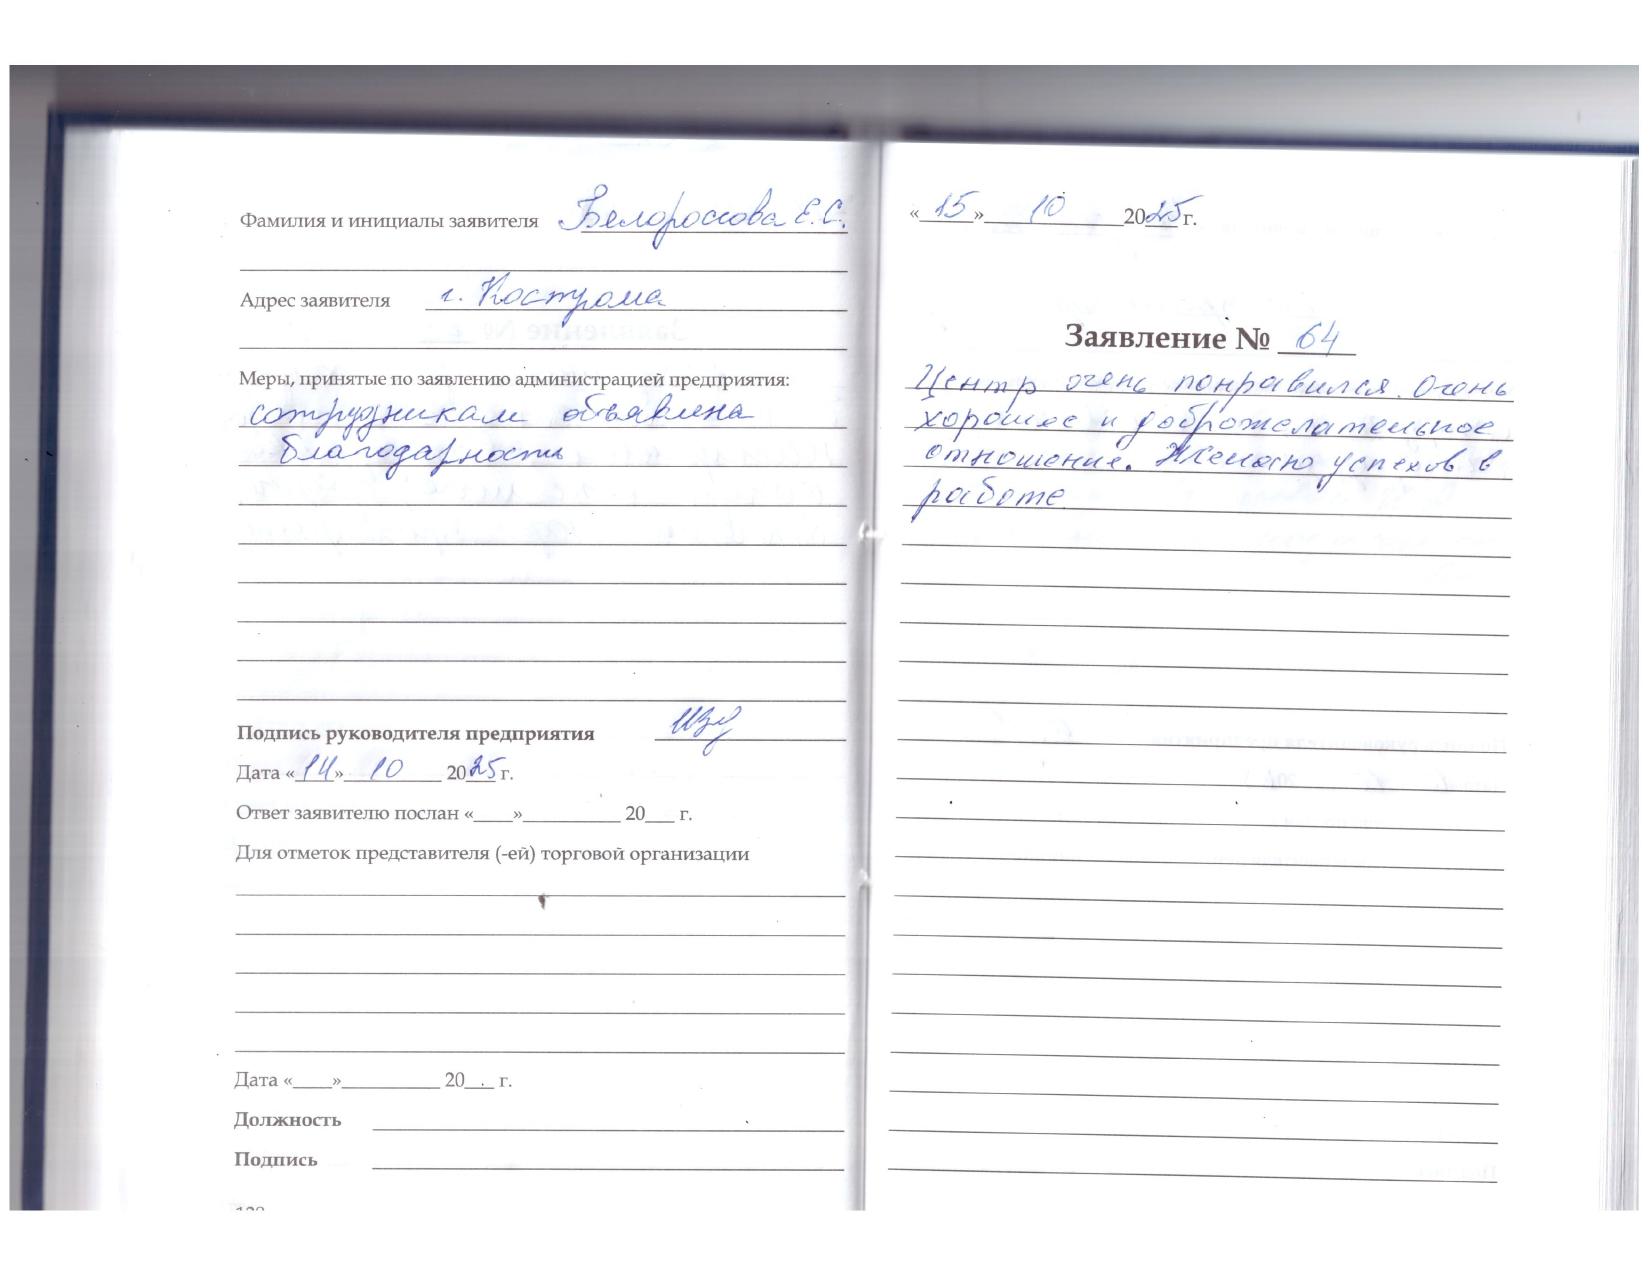 Фамилия и инициалы заявителя Белороссова Е.С.
Адрес заявителя г. Кострома
Меры, принятые по заявлению администрацией предприятия:
сотрудникам объявлена
благодарность
Подпись руководителя предприятия
Дата «14» 10 2025 г.
Ответ заявителю послан «____»__________ 20___ г.
Для отметок представителя (-ей) торговой организации
Дата «____»__________ 20___ г.
Должность
Подпись
«15» 10 2025 г.
Заявление № 64
Центр очень понравился. Очень
хорошее и доброжелательное
отношение. Желаю успехов в
работе